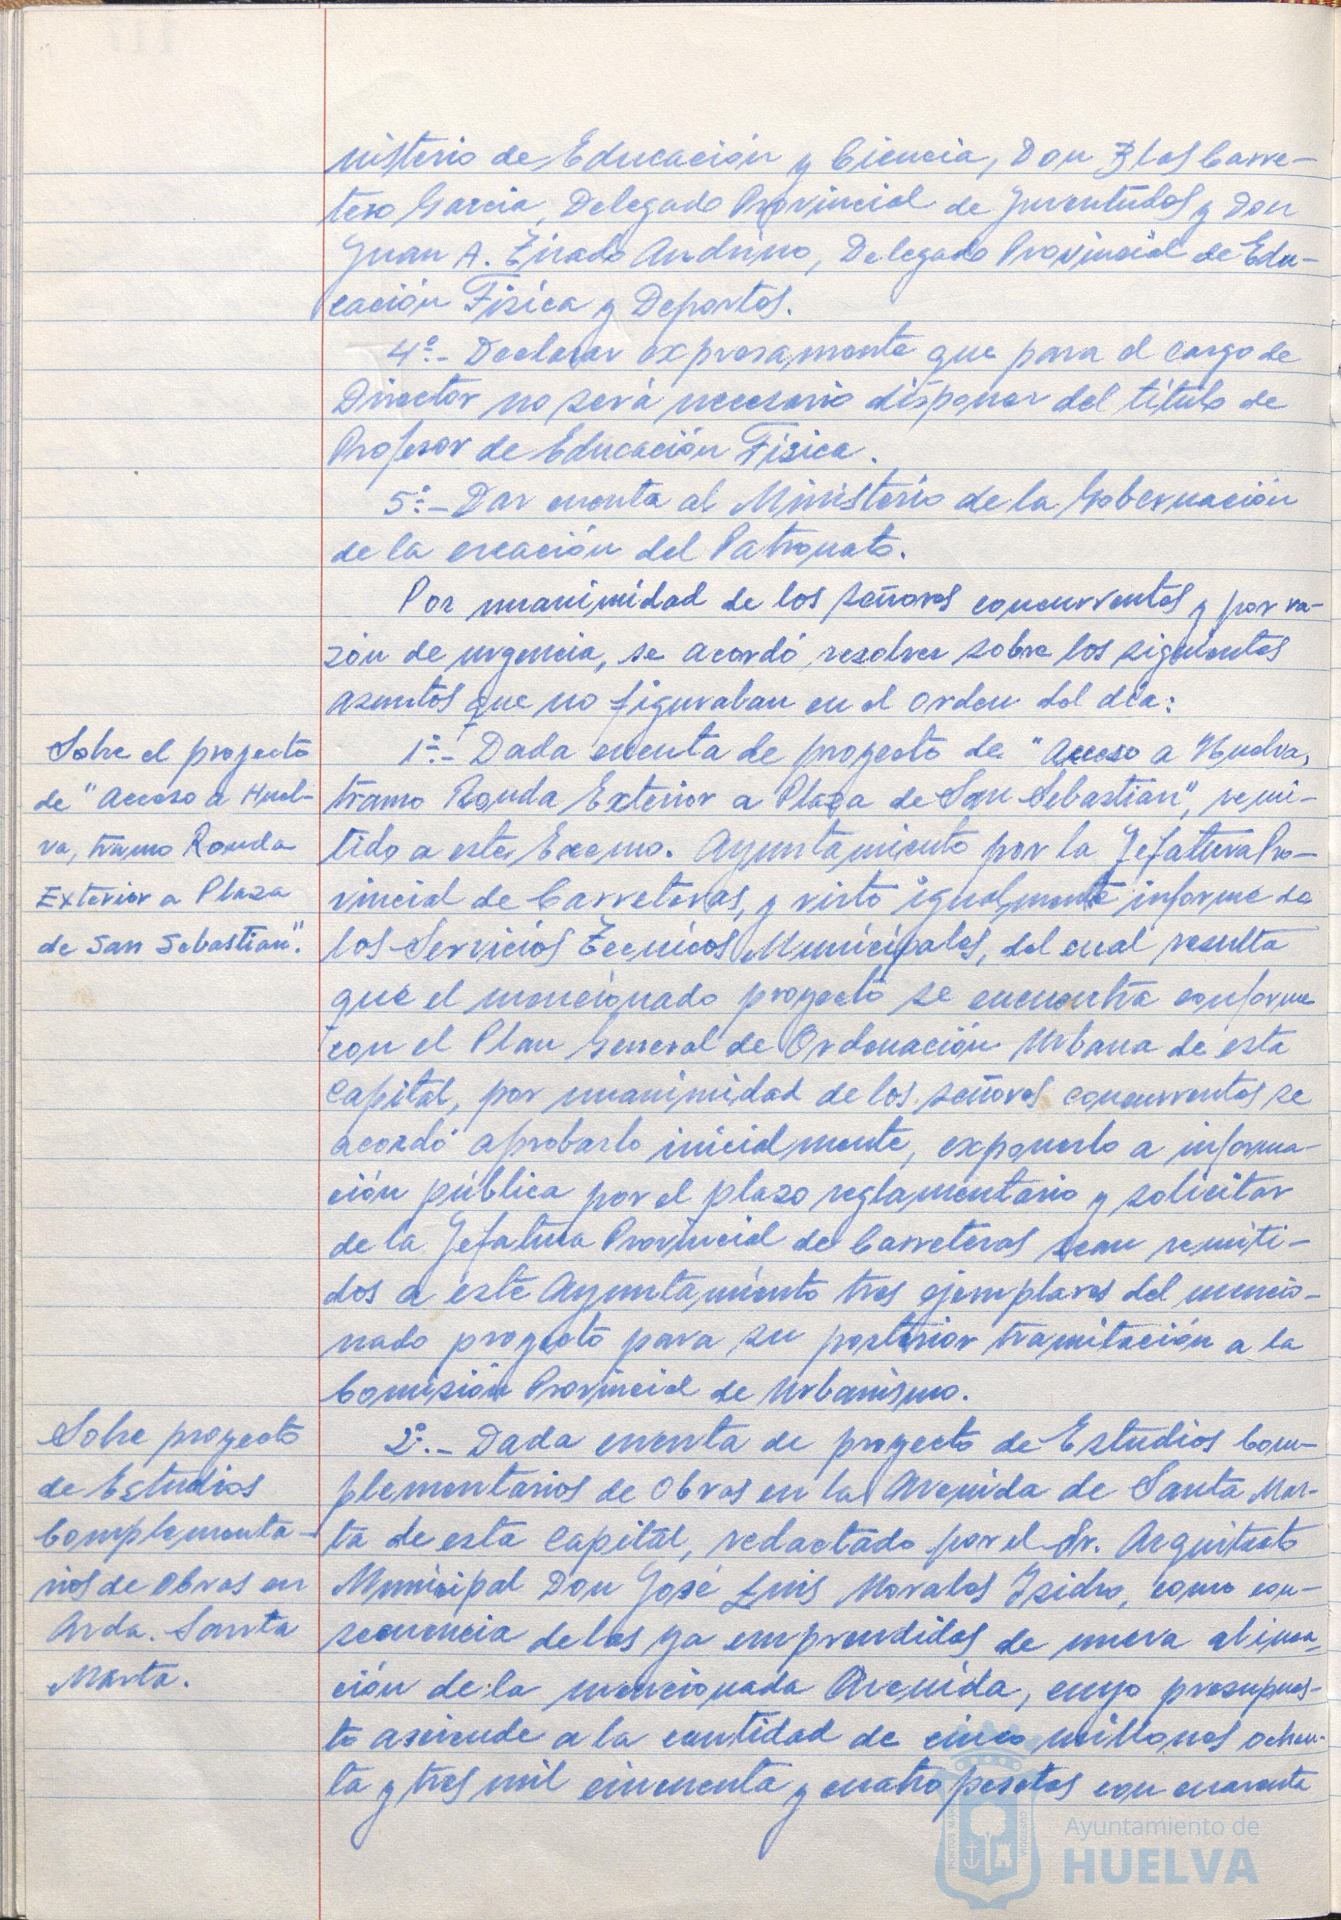 nisterio de Educación y Ciencia, Don Blas Carre-
tero Garcia, Delegado Provincial de Juventudes y Don
Juan A. Tirado Andrino, Delegado Provincial de Edu-
cación Fisica y Deportes.
4º.- Declarar expresamente que para el cargo de
Director no será necesario disponer del título de
Profesor de Educación Física.
5º.- Dar cuenta al Ministerio de la Gobernación
de la creación del Patronato.
Por unanimidad de los señores concurrentes y por ra-
zón de urgencia, se acordó resolver sobre los siguientes
asuntos que no figuraban en el orden del día:
Sobre el proyecto
de "Acceso a Huel-
va, tramo Ronda
Exterior a Plaza
de San Sebastian".
1º.- Dada cuenta de proyecto de "Acceso a Huelva,
tramo Ronda Exterior a Plaza de San Sebastian", remi-
tido a este Excmo. Ayuntamiento por la Jefatura Pro-
vincial de Carreteras, y visto igualmente informe de
los Servicios Tecnicos Municipales, del cual resulta
que el mencionado proyecto se encuentra conforme
con el Plan General de Ordenación Urbana de esta
Capital, por unanimidad de los señores concurrentes se
acordó aprobarlo inicialmente, exponerlo a informa-
ción pública por el plazo reglamentario y solicitar
de la Jefatura Provincial de Carreteras sean remiti-
dos a este Ayuntamiento tres ejemplares del mencio-
nado proyecto para su posterior tramitación a la
Comisión Provincial de Urbanismo.
Sobre proyecto
de Estudios
Complementa-
rios de Obras en
Avda. Santa
Marta.
2º.- Dada cuenta de proyecto de Estudios Com-
plementarios de Obras en la Avenida de Santa Mar-
ta de esta Capital, redactado por el Sr. Arquitecto
Municipal Don José Luis Morales Isidro, como con-
secuencia de las ya emprendidas de nueva alinea-
ción de la mencionada Avenida, cuyo presupues-
to asciende a la cantidad de cinco millones ochen-
ta y tres mil cincuenta y cuatro pesetas con cuarenta
Ayuntamiento de
HUELVA